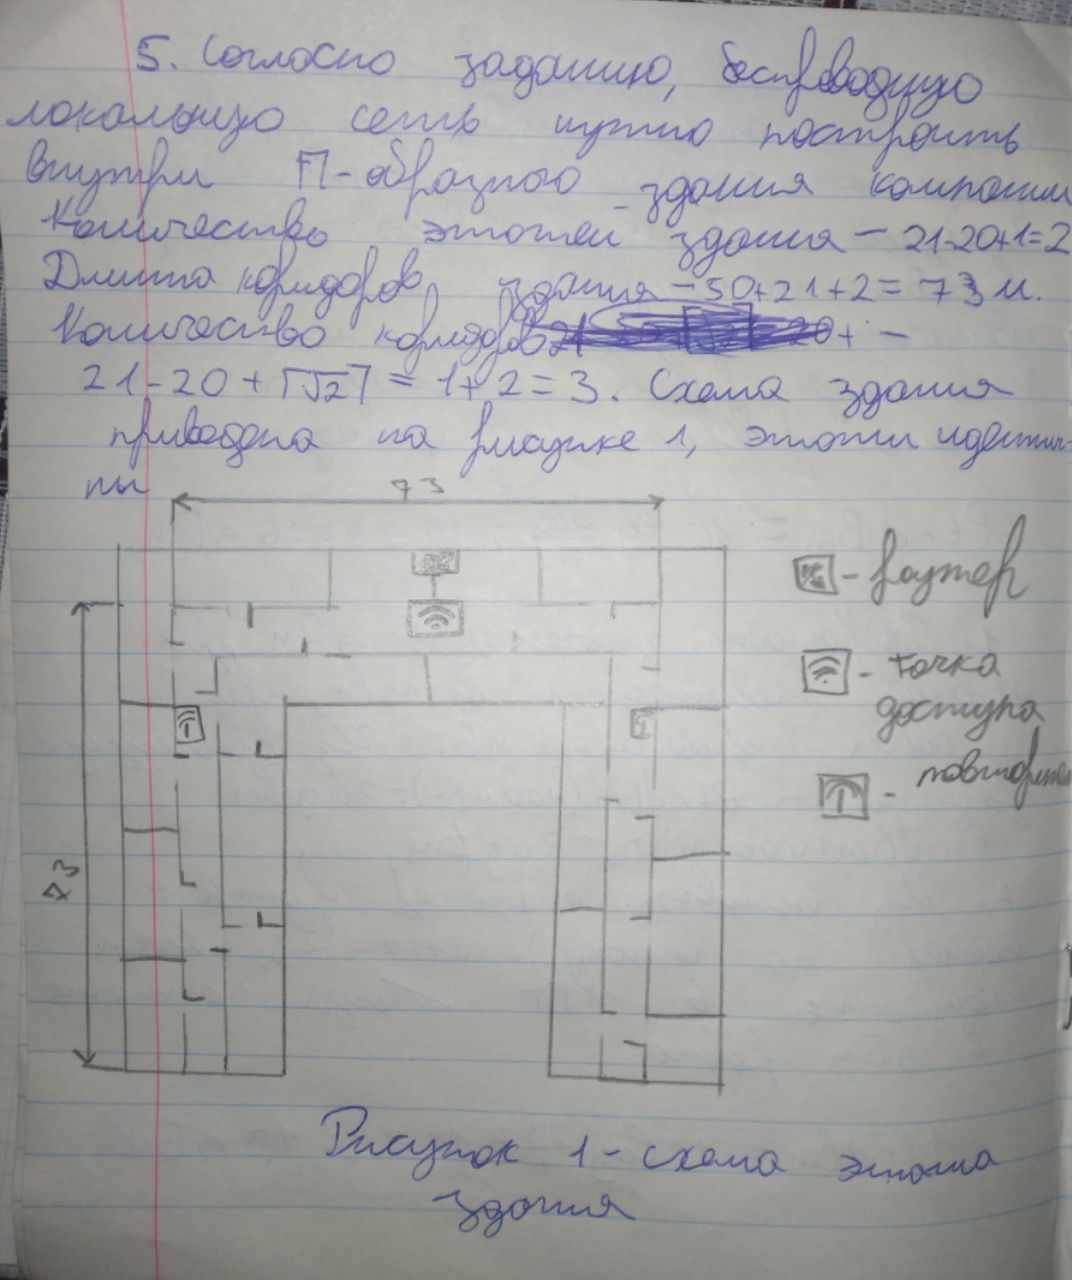 5. Согласно заданию, беспроводную
локальную сеть нужно построить
внутри П-образного здания компании
Количество этажей здания - 21-20+1=2
Длина коридоров здания - 50+21+2= 73 м.
Количество коридоров -
21-20+⌈√2⌉ = 1+2=3. Схема здания
приведена на рисунке 1, этажи идентич-
ны
73
- роутер
- точка
доступа
- повторитель
73
Рисунок 1 - схема этажа
здания